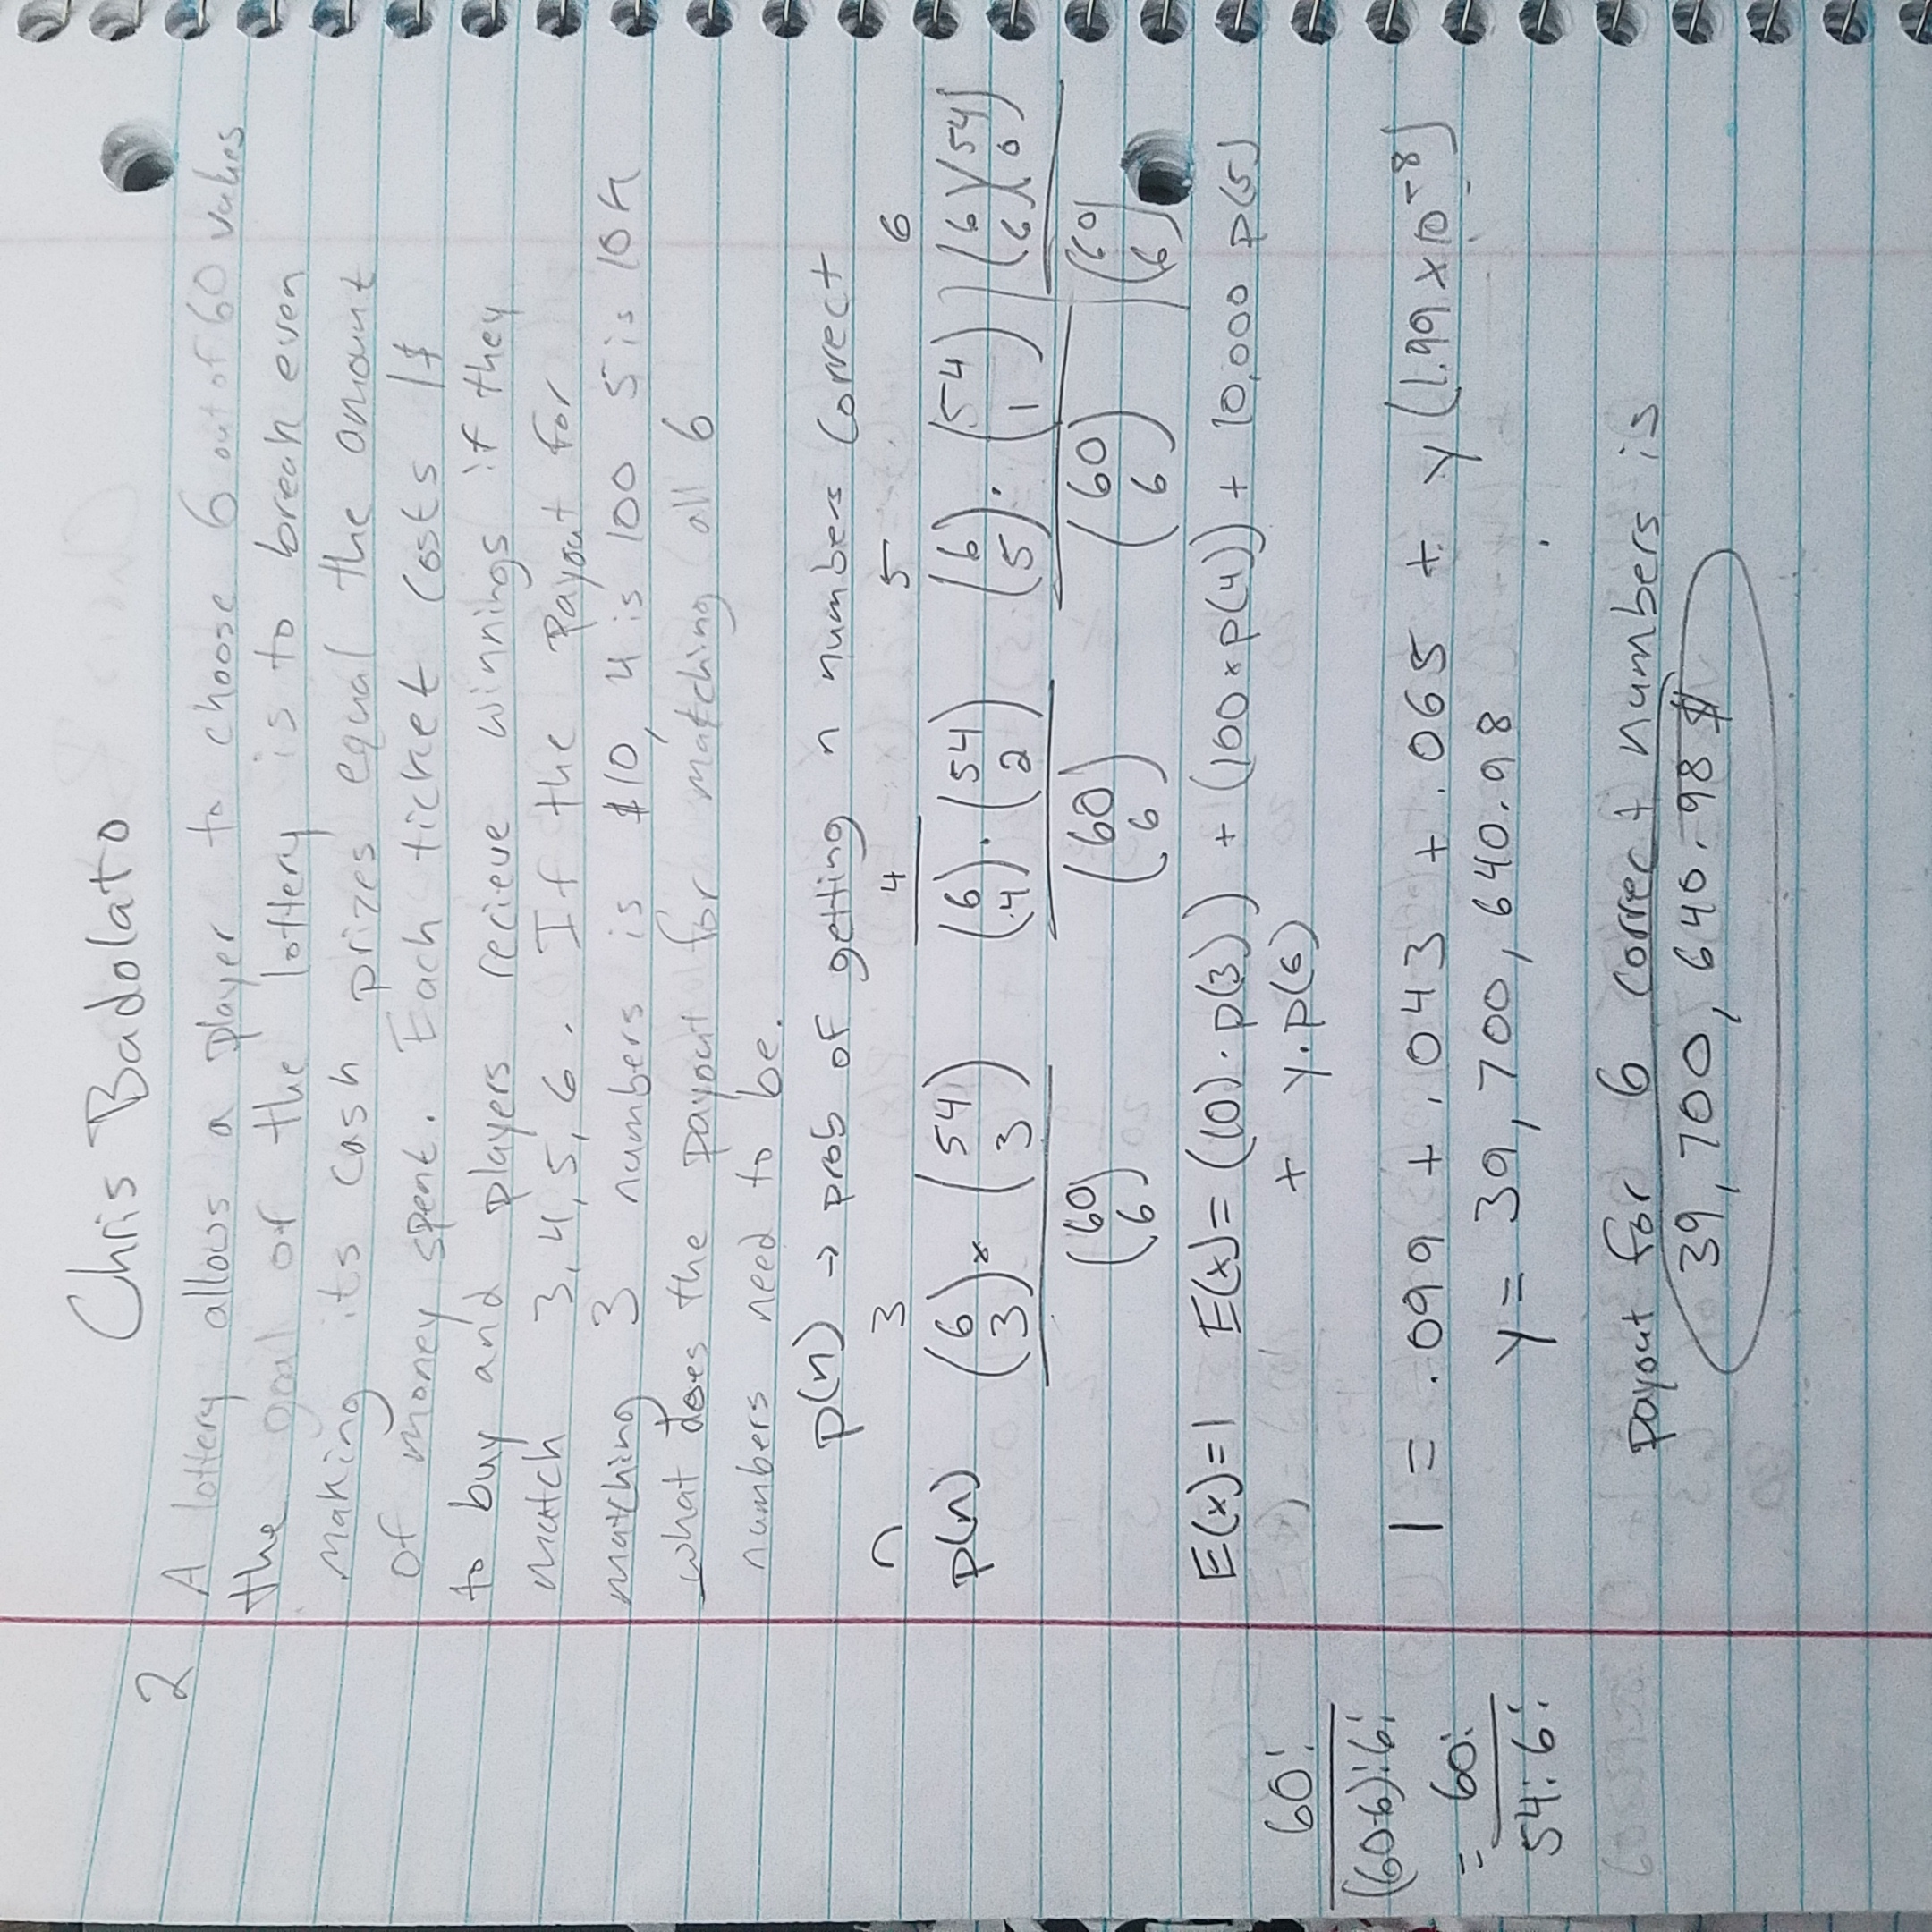 Chris Badolato
2 A lottery allows a player to choose 6 out of 60 values
the goal of the lottery is to break even
making its cash prizes equal the amount
of money spent. Each ticket costs 1$
to buy and players recieve winnings if they
match 3, 4, 5, 6. If the payout for
matching 3 numbers is $10, 4 is 100 5 is 10k
what does the payout for matching all 6
numbers need to be.
p(n) → prob of getting n numbers correct
n 3 4 5 6
p(n) (6 3) × (54 3) / (60 6) (6 4) · (54 2) / (60 6) (6 5) · (54 1) / (60 6) (6 6)(54 0) / (60 6)
E(x)=1 E(x)= ((10) · p(3)) + (100 × p(4)) + 10,000 p(5)
+ y · p(6)
60! / (60-6)!6!
= 60! / 54! 6!
1 = .099 + .043 + .065 + y (1.99 × 10⁻⁸)
y = 39,700,640.98
payout for 6 correct numbers is
39,700,640.98 $